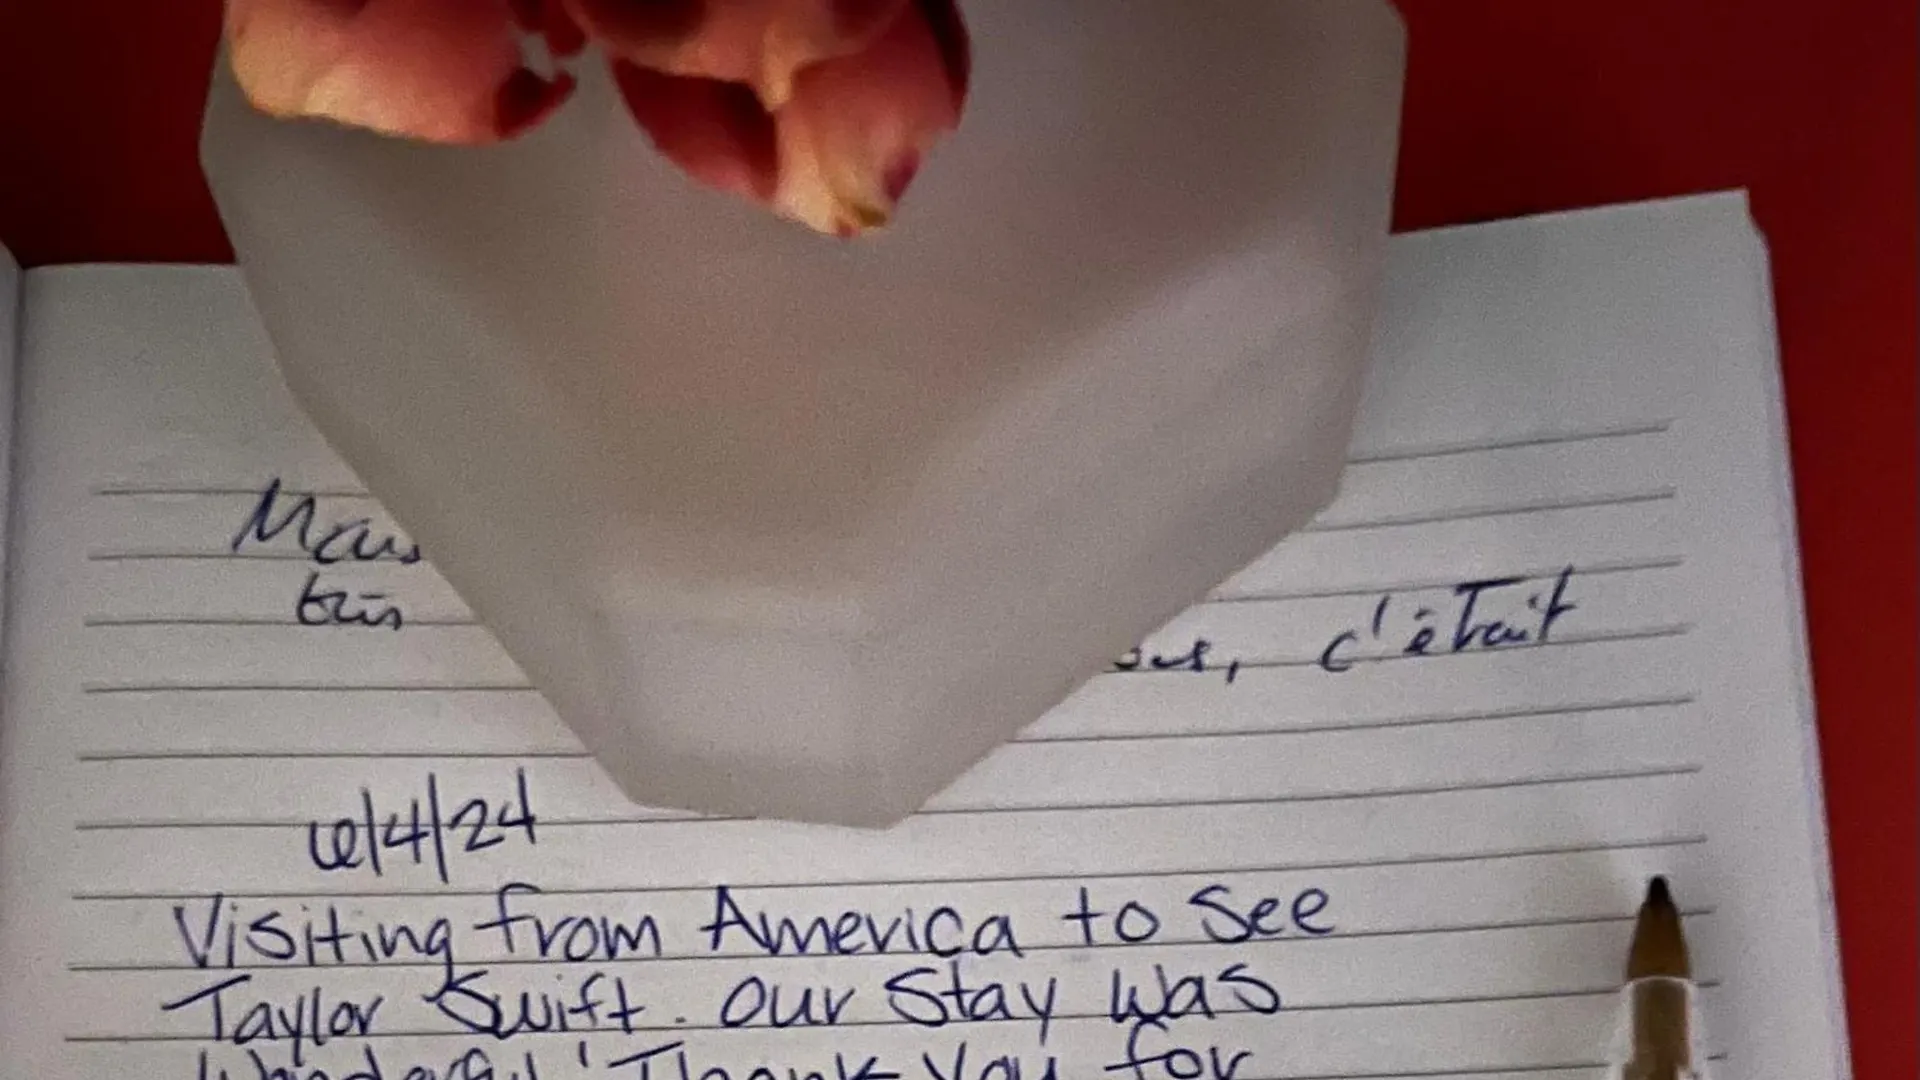 très
c'était
6/4/24
Visiting from America to see
Taylor Swift. Our stay was
Wonderful! Thank you for